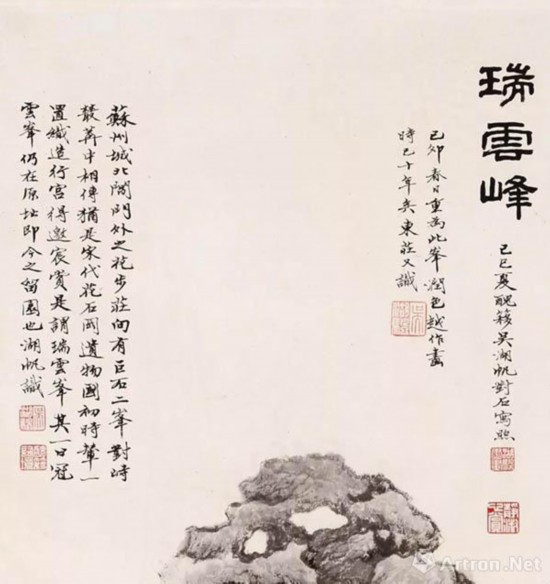 瑞雲峰
己巳夏醜簃吳湖帆對石寫照
己卯春日重為此峯潤色越作畫
時已十年矣東莊又識
蘇州城北閶門外之花步莊向有巨石二峯對峙
叢莽中相傳猶是宋代花石岡遺物國初時輦一
置織造行宮得邀宸賞是謂瑞雲峯其一曰冠
雲峯仍在原址即今之留園也湖帆識
Artron.Net